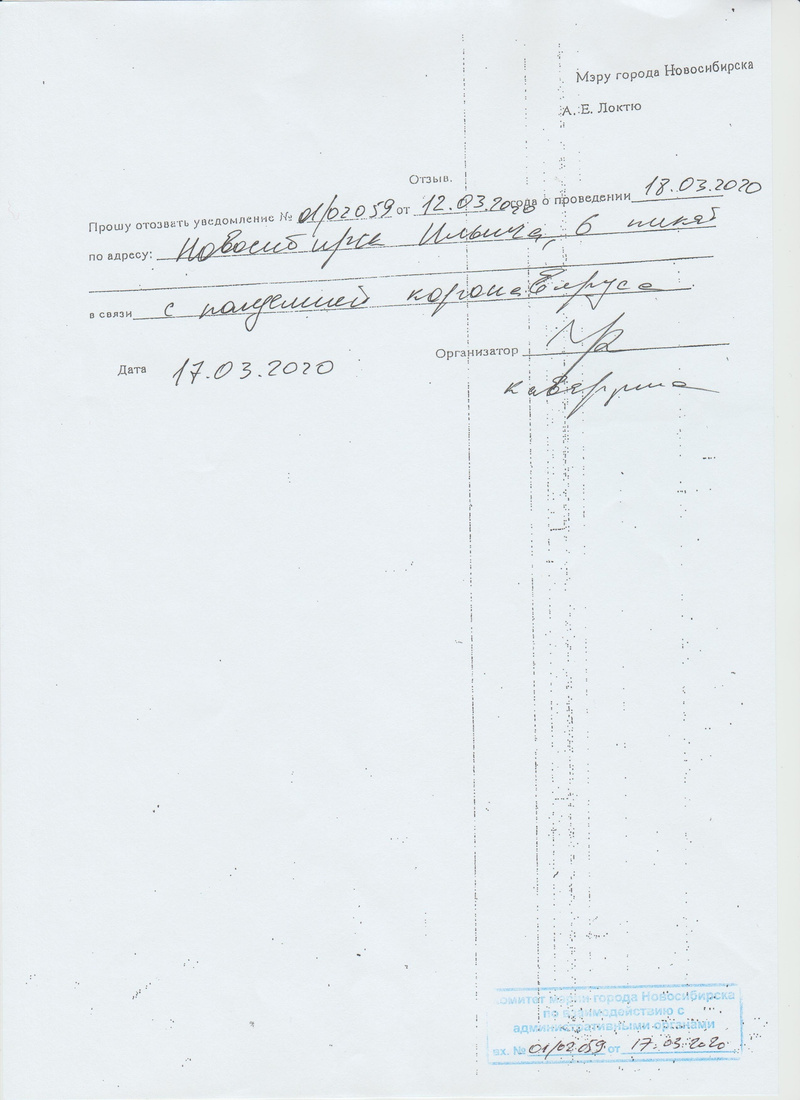 Мэру города Новосибирска
А. Е. Локтю
Отзыв.
Прошу отозвать уведомление № 01/02059 от 12.03.2020 года о проведении 18.03.2020
по адресу: Новосибирск Ильича, 6 пикет
в связи с пандемией коронавируса.
Организатор
Дата 17.03.2020
Каверзина
Комитет мэрии города Новосибирска
по взаимодействию с
административными органами
вх. № 01/02059 от 17.03.2020